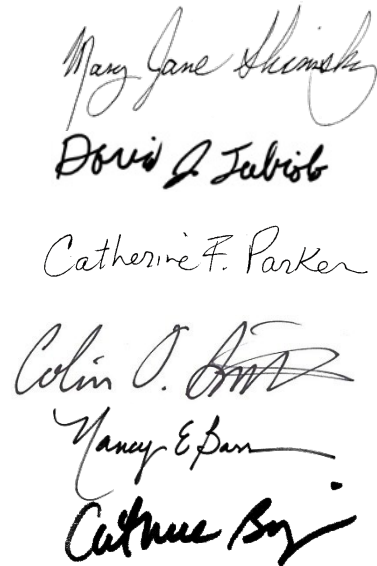 Mary Jane Shimsky
David J. Tubiolo
Catherine F. Parker
Colin D. Smith
Nancy E Barr
Catherine